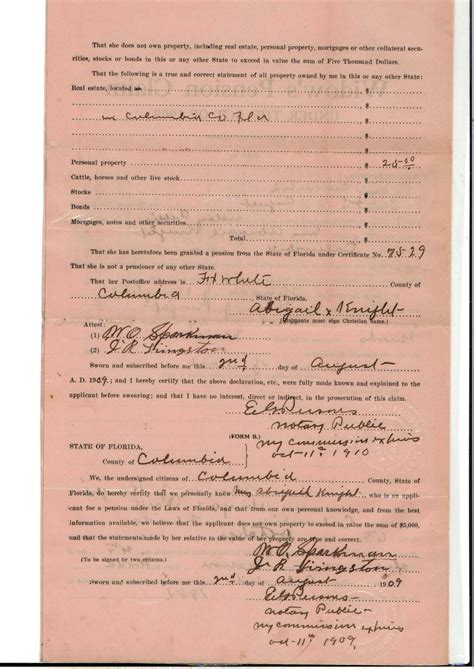 That she does not own property, including real estate, personal property, mortgages or other collateral secu-
rities, stocks or bonds in this or any other State to exceed in value the sum of Five Thousand Dollars.
That the following is a true and correct statement of all property owned by me in this or any other State:
Real estate, located at $
in Columbia Co Fla $
$
$
$
Personal property $ 25 00
Cattle, horses and other live stock. $
Stocks $
Bonds $
Mortgages, notes and other securities $
Total $
That she has heretofore been granted a pension from the State of Florida under Certificate No. 7529
That she is not a pensioner of any other State.
That her Postoffice address is Ft White County of
Columbia State of Florida.
Abigail x Knight
(Applicants must sign Christian name.)
Attest:
(1) W.O. Sparkman
(2) J R Livingston
Sworn and subscribed before me this 2nd day of August
A. D. 1909; and I hereby certify that the above declaration, etc., were fully made known and explained to the
applicant before swearing; and that I have no interest, direct or indirect, in the prosecution of this claim.
Notary Public
(FORM B.) my commission expires
oct-11th 1910
STATE OF FLORIDA,
County of Columbia
We, the undersigned citizens of Columbia County, State of
Florida, do hereby certify that we personally know Mrs Abigail Knight, who is an appli-
cant for a pension under the Laws of Florida; and that from our own personal knowledge, and from the best
information available, we believe that the applicant does not own property to exceed in value the sum of $5,000,
and that the statements made by her relative to the value of her property are true and correct:
W.O. Sparkman
(To be signed by two citizens.) J R Livingston
Sworn and subscribed before me this 2nd day of August 1909
Notary Public
my commission expires
oct-11th 1909.